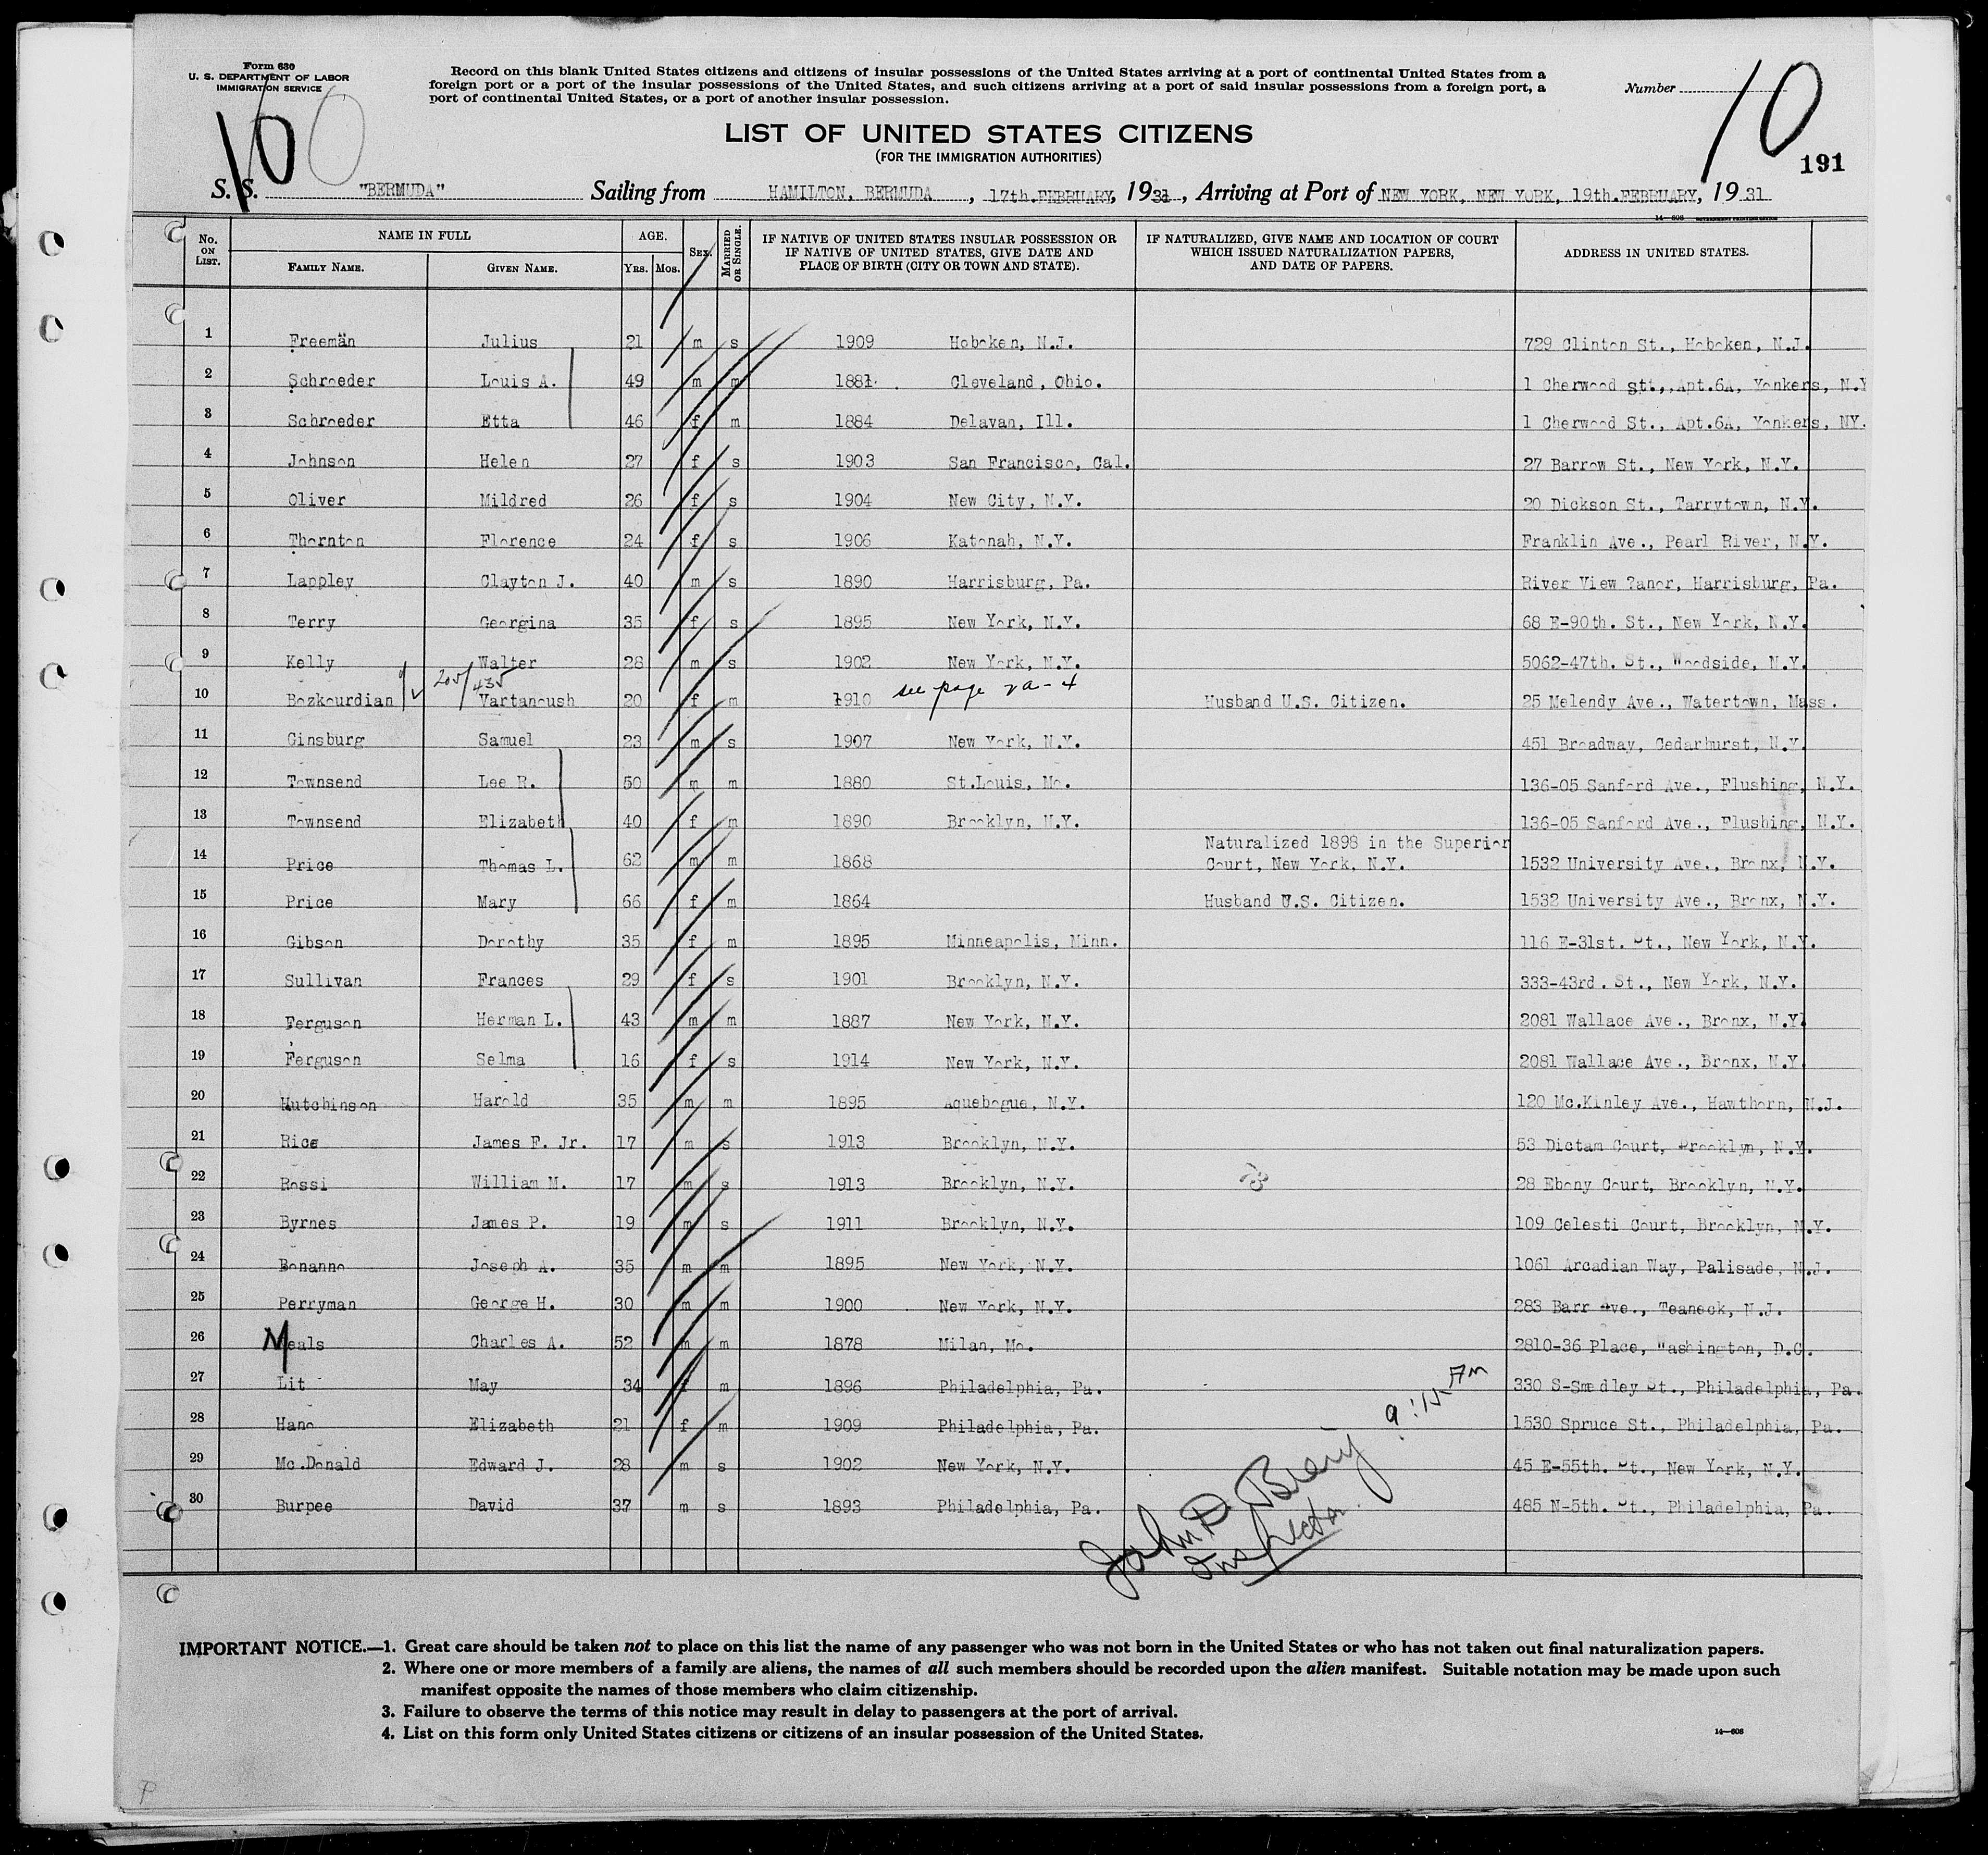 Form 630
U. S. DEPARTMENT OF LABOR
IMMIGRATION SERVICE
Record on this blank United States citizens and citizens of insular possessions of the United States arriving at a port of continental United States from a
foreign port or a port of the insular possessions of the United States, and such citizens arriving at a port of said insular possessions from a foreign port, a
port of continental United States, or a port of another insular possession.
Number 10
100
191
LIST OF UNITED STATES CITIZENS
(FOR THE IMMIGRATION AUTHORITIES)
S. S. "BERMUDA" Sailing from HAMILTON, BERMUDA, 17th.FEBRUARY, 1931, Arriving at Port of NEW YORK, NEW YORK, 19th.FEBRUARY, 1931
14—608 GOVERNMENT PRINTING OFFICE
No. ON LIST. NAME IN FULL FAMILY NAME. GIVEN NAME. AGE. YRS. MOS. SEX. MARRIED OR SINGLE. IF NATIVE OF UNITED STATES INSULAR POSSESSION OR IF NATIVE OF UNITED STATES, GIVE DATE AND PLACE OF BIRTH (CITY OR TOWN AND STATE). IF NATURALIZED, GIVE NAME AND LOCATION OF COURT WHICH ISSUED NATURALIZATION PAPERS, AND DATE OF PAPERS. ADDRESS IN UNITED STATES.
1 Freeman Julius 21 m s 1909 Hoboken, N.J. 729 Clinton St., Hoboken, N.J.
2 Schroeder Louis A. 49 m m 1881 Cleveland, Ohio. 1 Cherwood stt.,.Apt.6A, Yonkers, N.Y
3 Schroeder Etta 46 f m 1884 Delavan, Ill. 1 Cherwood St., Apt.6A, Yonkers, NY.
4 Johnson Helen 27 f s 1903 San Francisco, Cal. 27 Barrow St., New York, N.Y.
5 Oliver Mildred 26 f s 1904 New City, N.Y. 20 Dickson St., Tarrytown, N.Y.
6 Thornton Florence 24 f s 1906 Katonah, N.Y. Franklin Ave., Pearl River, N.Y.
7 Lappley Clayton J. 40 m s 1890 Harrisburg, Pa. River View ?anor, Harrisburg, Pa.
8 Terry Georgina 35 f s 1895 New York, N.Y. 68 E-90th. St., New York, N.Y.
9 Kelly Walter 28 m s 1902 New York, N.Y. 5062-47th. St., Woodside, N.Y.
205/435
10 Bozkourdian Vartanoush 20 f m 1910 see page 2a-4 Husband U.S. Citizen. 25 Melendy Ave., Watertown, Mass.
11 Ginsburg Samuel 23 m s 1907 New York, N.Y. 451 Broadway, Cedarhurst, N.Y.
12 Townsend Lee R. 50 m m 1880 St.Louis, Mo. 136-05 Sanford Ave., Flushing, N.Y.
13 Townsend Elizabeth 40 f m 1890 Brooklyn, N.Y. 136-05 Sanford Ave., Flushing, N.Y.
Naturalized 1898 in the Superior
14 Price Thomas L. 62 m m 1868 Court, New York, N.Y. 1532 University Ave., Bronx, N.Y.
15 Price Mary 66 f m 1864 Husband U.S. Citizen. 1532 University Ave., Bronx, N.Y.
16 Gibson Dorothy 35 f m 1895 Minneapolis, Minn. 116 E-31st. St., New York, N.Y.
17 Sullivan Frances 29 f s 1901 Brooklyn, N.Y. 333-43rd. St., New York, N.Y.
18 Ferguson Herman L. 43 m m 1887 New York, N.Y. 2081 Wallace Ave., Bronx, N.Y.
19 Ferguson Selma 16 f s 1914 New York, N.Y. 2081 Wallace Ave., Bronx, N.Y.
20 Hutchinson Harold 35 m m 1895 Aquebogue, N.Y. 120 Mc.Kinley Ave., Hawthorn, N.J.
21 Rice James F. Jr. 17 m s 1913 Brooklyn, N.Y. 53 Dictam Court, Brooklyn, N.Y.
22 Rossi William M. 17 m s 1913 Brooklyn, N.Y. 28 Ebony Court, Brooklyn, N.Y.
23 Byrnes James P. 19 m s 1911 Brooklyn, N.Y. 109 Celesti Court, Brooklyn, N.Y.
24 Bonanno Joseph A. 35 m m 1895 New York, N.Y. 1061 Arcadian Way, Palisade, N.J.
25 Perryman George H. 30 m m 1900 New York, N.Y. 283 Barr Ave., Teaneck, N.J.
26 Meals Charles A. 52 m m 1878 Milan, Mo. 2810-36 Place, Washington, D.C.
27 Lit May 34 f m 1896 Philadelphia, Pa. 330 S-Smedley St., Philadelphia, Pa.
28 Hano Elizabeth 21 f m 1909 Philadelphia, Pa. 1530 Spruce St., Philadelphia, Pa.
29 Mc.Donald Edward J. 28 m s 1902 New York, N.Y. 45 E-55th. St., New York, N.Y.
30 Burpee David 37 m s 1893 Philadelphia, Pa. 485 N-5th. St., Philadelphia, Pa.
9:15 AM
John D.
Inspector
IMPORTANT NOTICE.—1. Great care should be taken not to place on this list the name of any passenger who was not born in the United States or who has not taken out final naturalization papers.
2. Where one or more members of a family are aliens, the names of all such members should be recorded upon the alien manifest. Suitable notation may be made upon such
manifest opposite the names of those members who claim citizenship.
3. Failure to observe the terms of this notice may result in delay to passengers at the port of arrival.
4. List on this form only United States citizens or citizens of an insular possession of the United States.
14—608